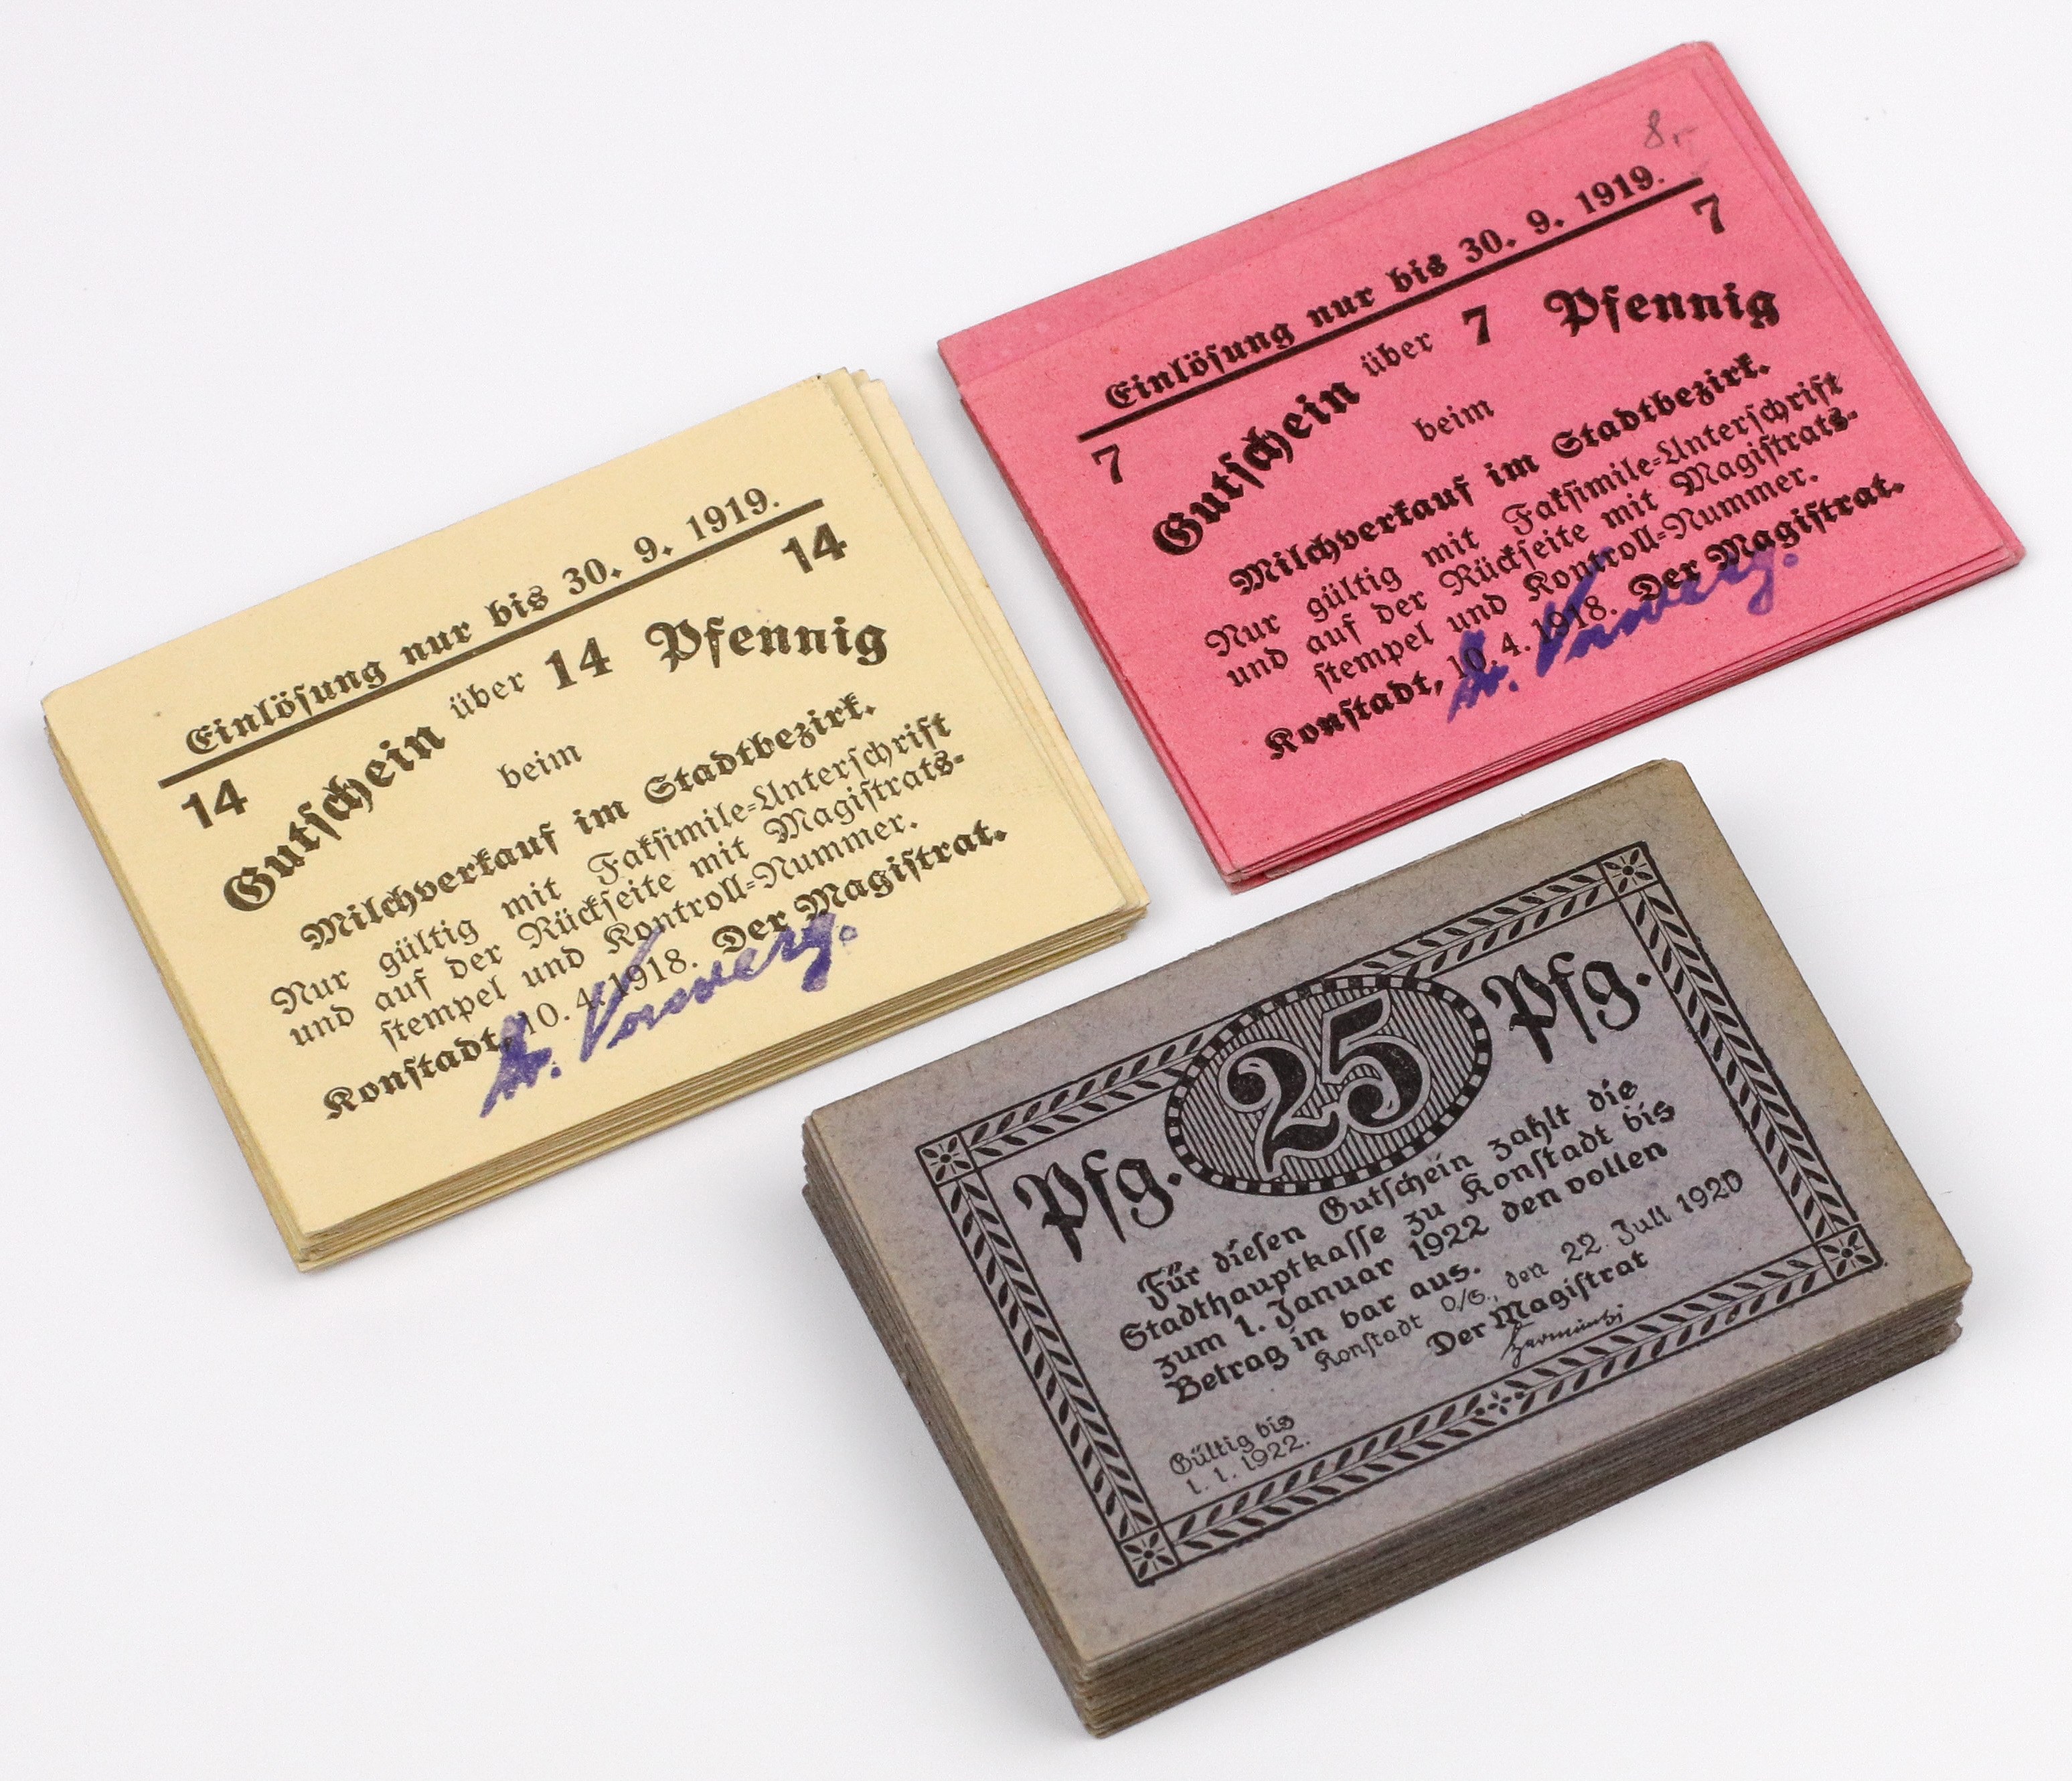 Einlösung nur bis 30. 9. 1919.
14 14
Gutschein über 14 Pfennig
beim
Milchverkauf im Stadtbezirk.
Nur gültig mit Faksimile-Unterschrift
und auf der Rückseite mit Magistrats-
stempel und Kontroll-Nummer.
Konstadt, 10. 4. 1918. Der Magistrat.
8,-
Einlösung nur bis 30. 9. 1919.
7 7
Gutschein über 7 Pfennig
beim
Milchverkauf im Stadtbezirk.
Nur gültig mit Faksimile-Unterschrift
und auf der Rückseite mit Magistrats-
stempel und Kontroll-Nummer.
Konstadt, 10. 4. 1918. Der Magistrat.
Pfg. 25 Pfg.
Für diesen Gutschein zahlt die
Stadthauptkasse zu Konstadt bis
zum 1. Januar 1922 den vollen
Betrag in bar aus.
Konstadt O/S., den 22. Juli 1920
Der Magistrat
Gültig bis
1. 1. 1922.